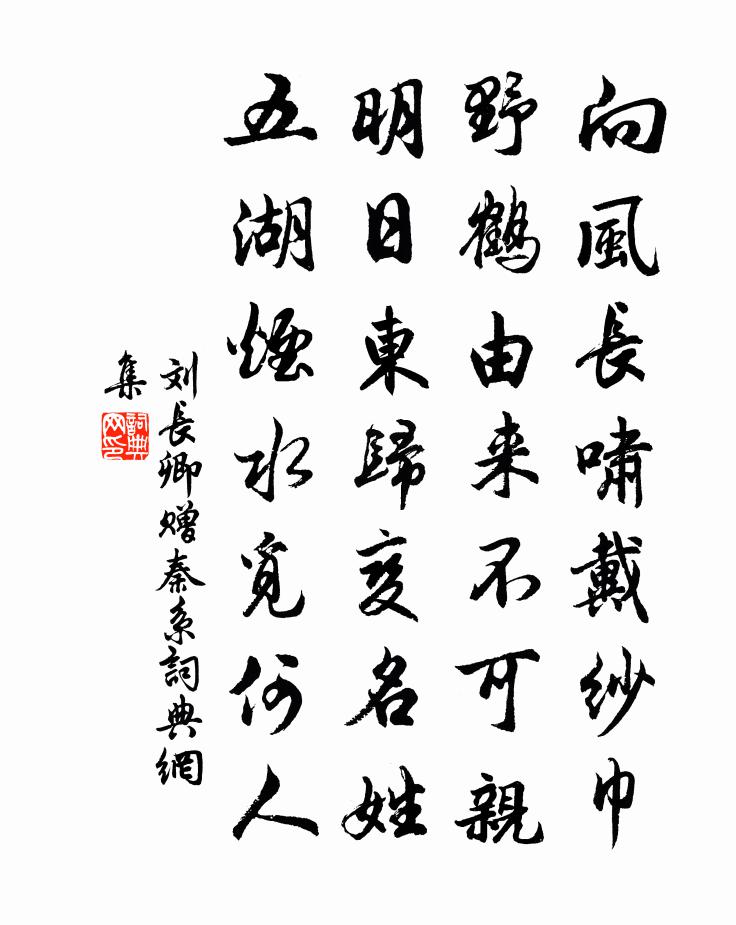 向風長嘯戴紗巾
野鶴由来不可親
明日東歸变名姓
五湖煙水覓何人
刘長卿赠秦系詞典網
集
詞典网印